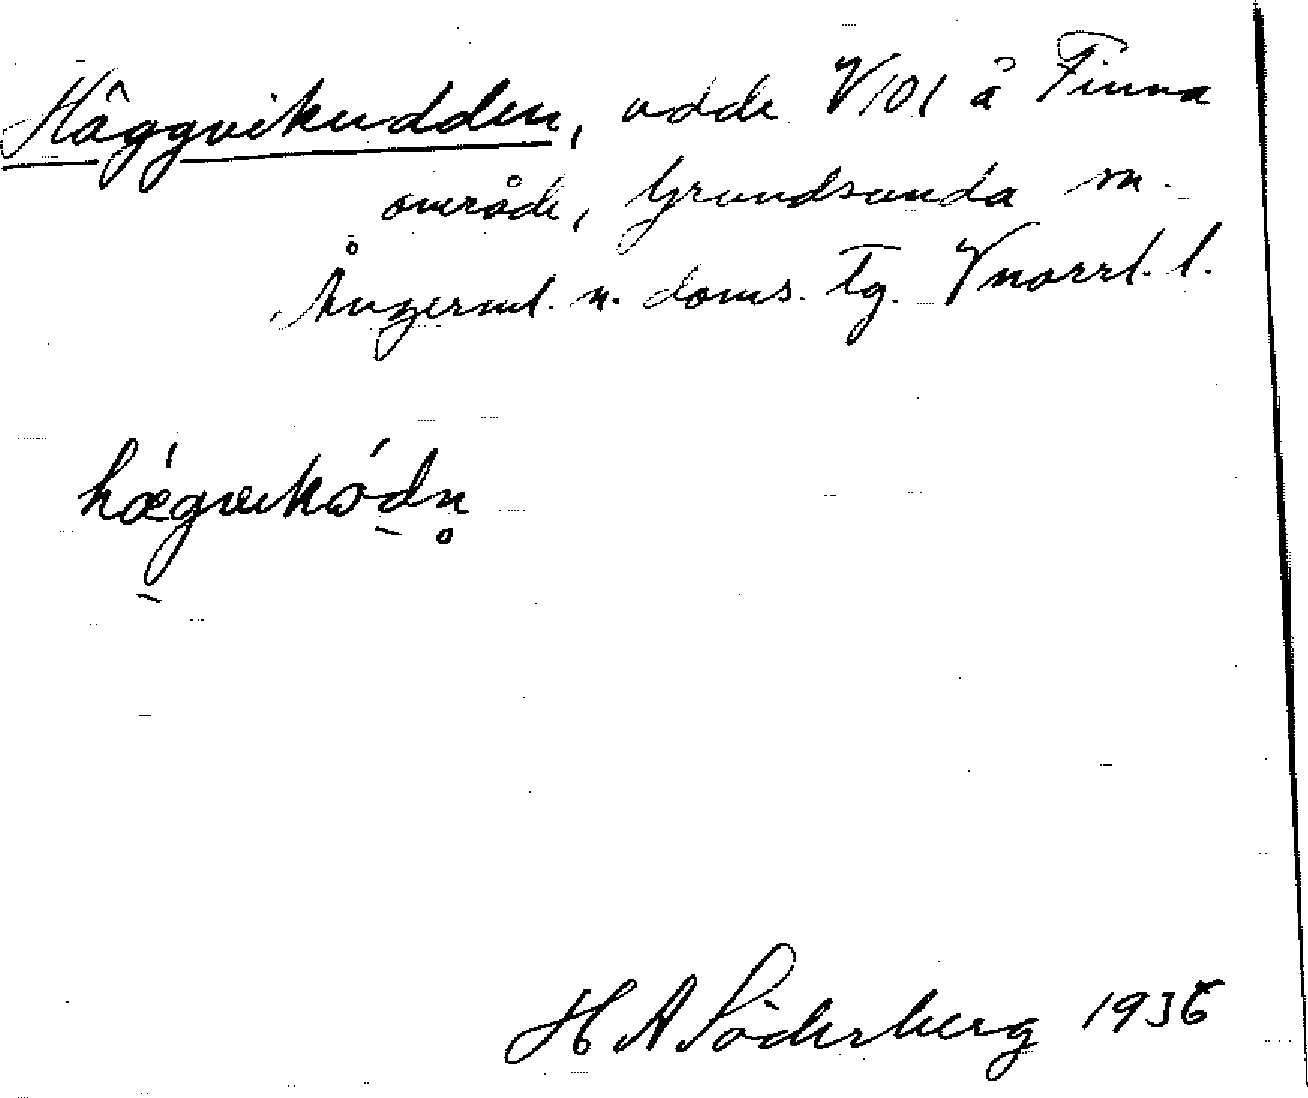 Häggvikudden, udde V101 å Finna
område, Grundsunda sn.
Ångerml. n. doms. tg. Vnorrl. l.
hǽgvikódn̥
H A Söderberg 1936